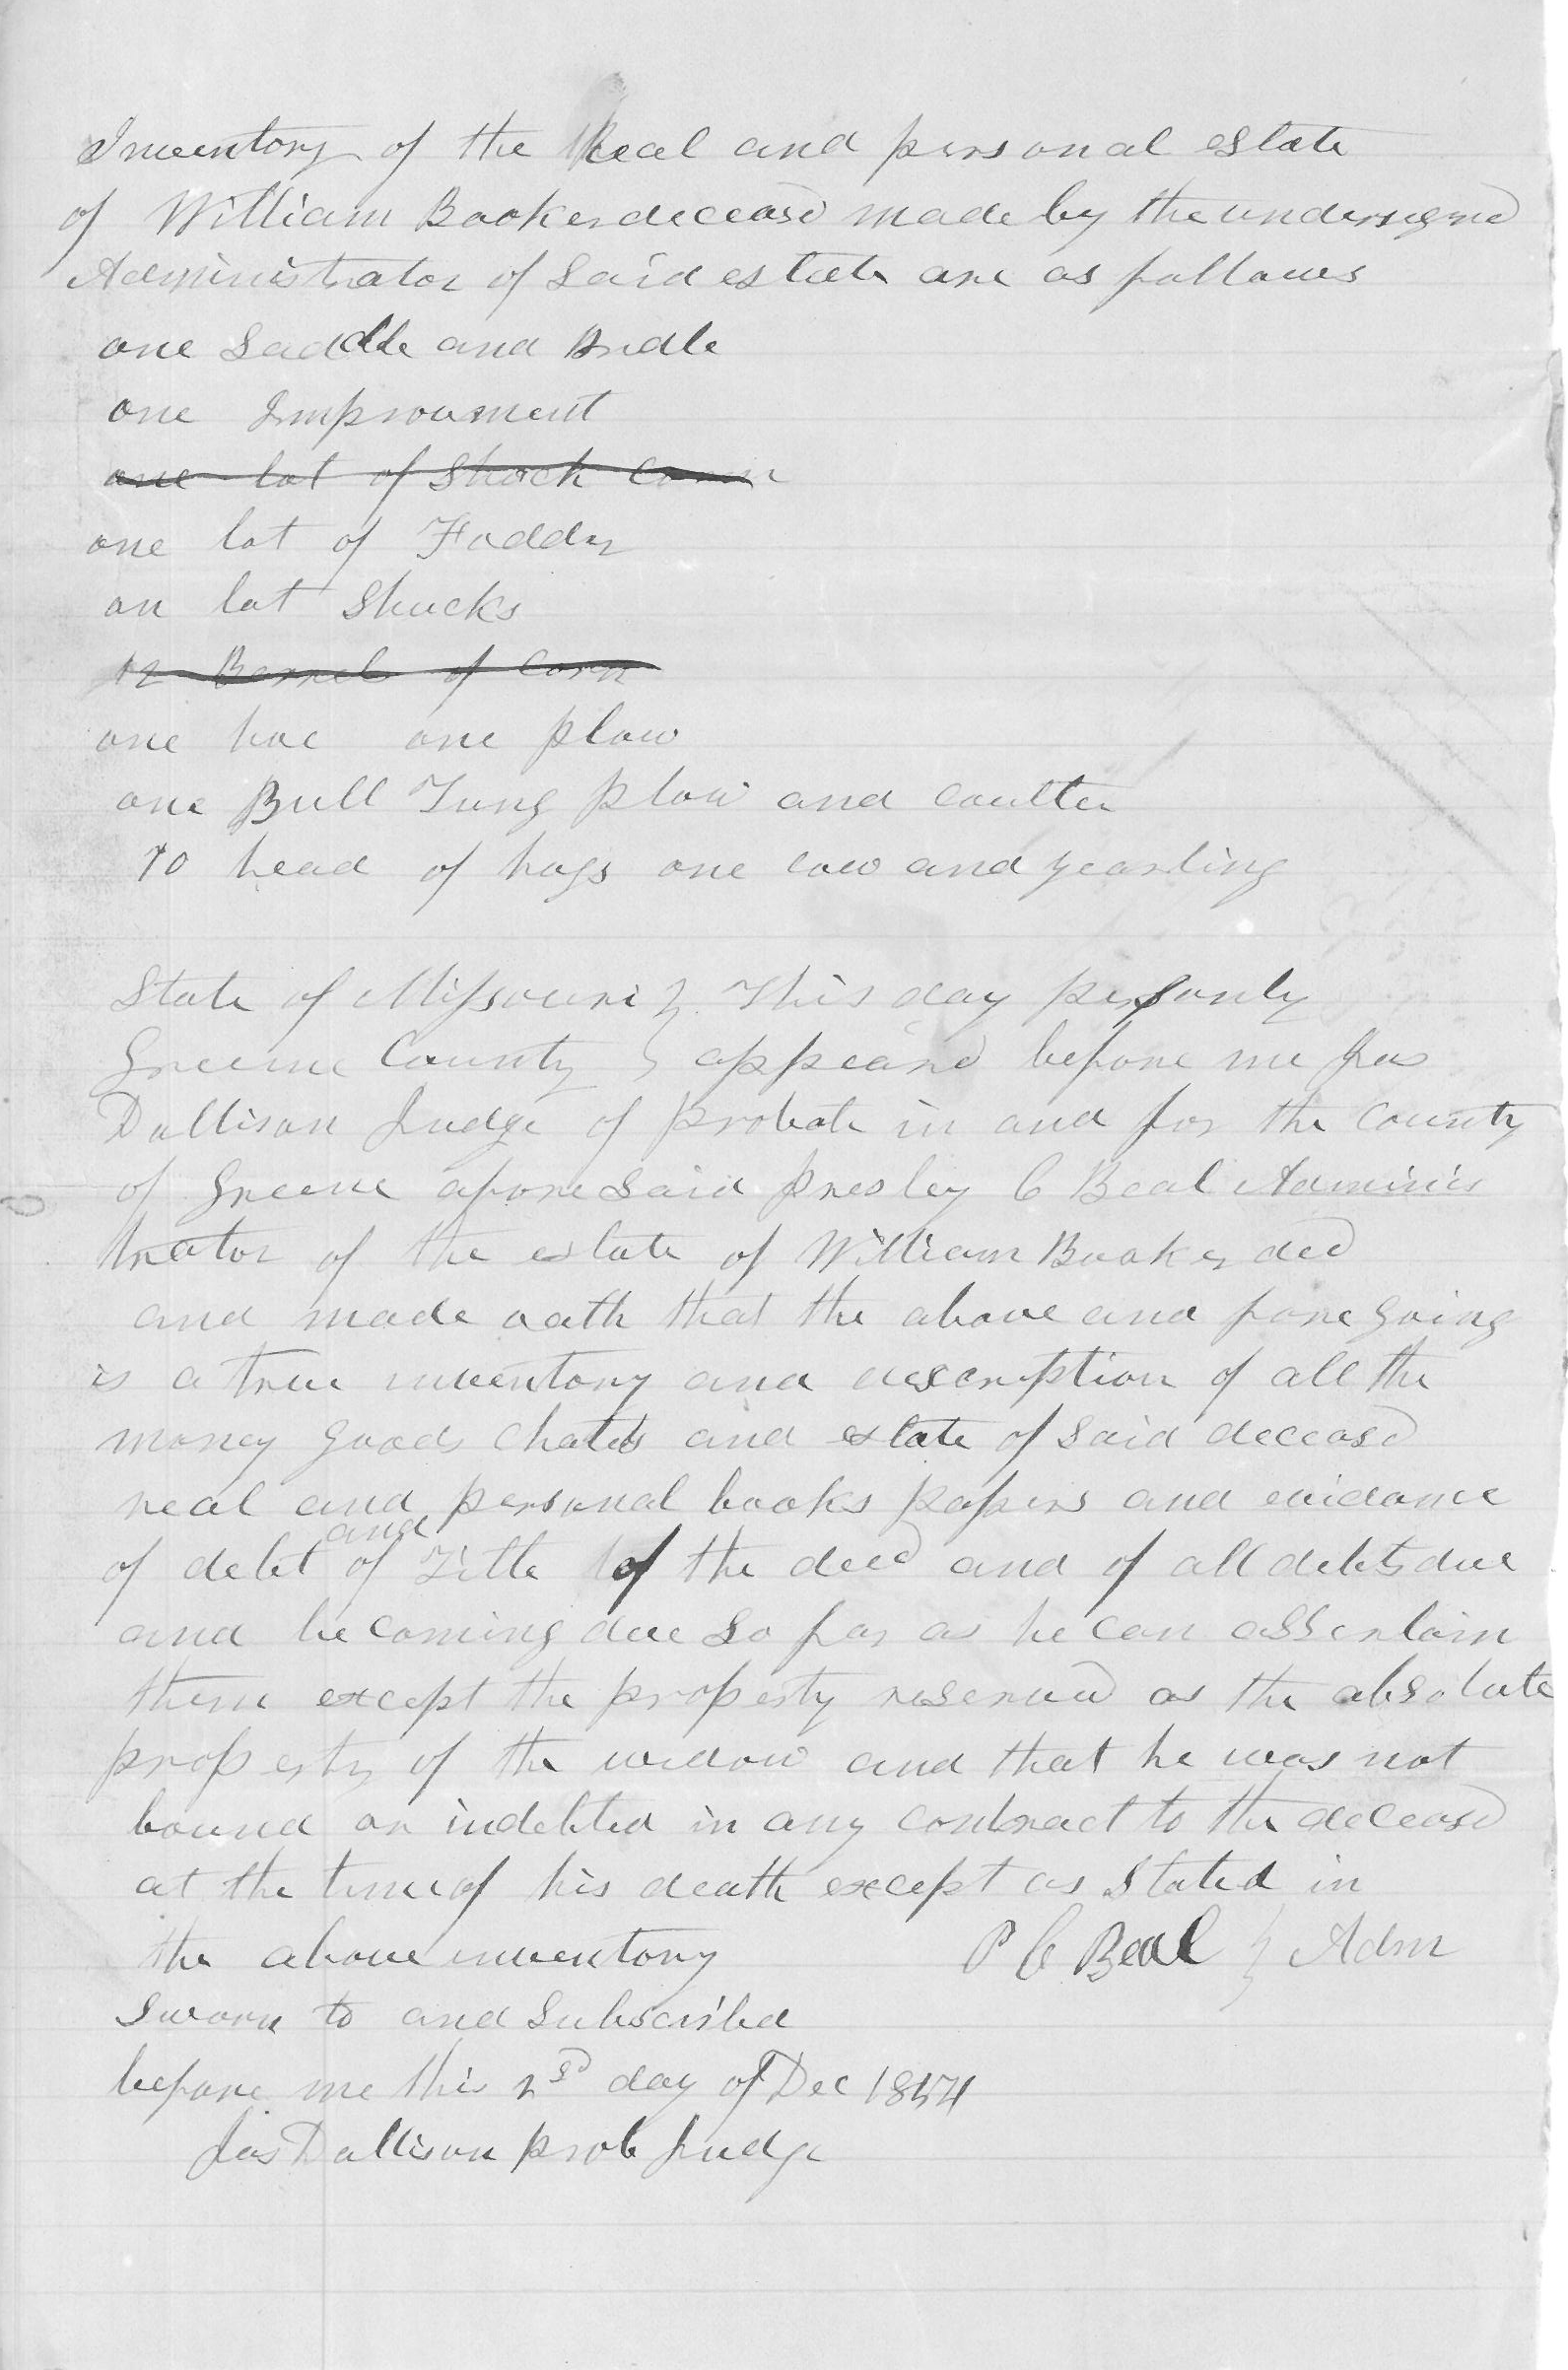 Inventory of the Real and personal estate
of William Booker deceasd made by the undersigned
Administrator of Said estate are as follows
one Saddle and Bridle
one Improvment
one lot of Shock Corn
one lot of Fodder
on lot Shucks
12 Barrels of Corn
one hoe one plow
one Bull Tung plow and coulter
10 head of hogs one cow and yearling
State of Missouri } This day personly
Greene County } appeard before me Jas
Dollison Judge of probate in and for the County
of Greene afore Said presley C Beal Adminis
trator of the estate of William Booker decd
and made oath that the above and fore going
is a true inventory and description of all the
money goods chatels and estate of Said deceasd
real and personal books papers and evidance
of debt and of Title of the decd and of all debts due
and be coming due So far as he can assertain
them except the property reserved as the absolute
property of the widow and that he was not
bound or indebted in any contract to the deceasd
at the time of his death except as Stated in
the above inventory P C Beal } Adm
Sworn to and Subscribed
before me this 2d day of Dec 1854
Jas Dollison prob Judge